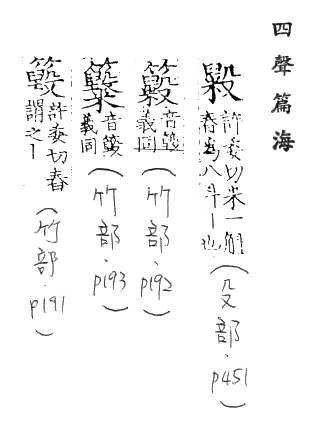 四聲篇海
毇 許委切米一斛
舂為八斗丨也(殳部、p451)
音毇
義同(竹部、p192)
音毇
義同(竹部、p193)
許委切舂
謂之丨(竹部、p191)